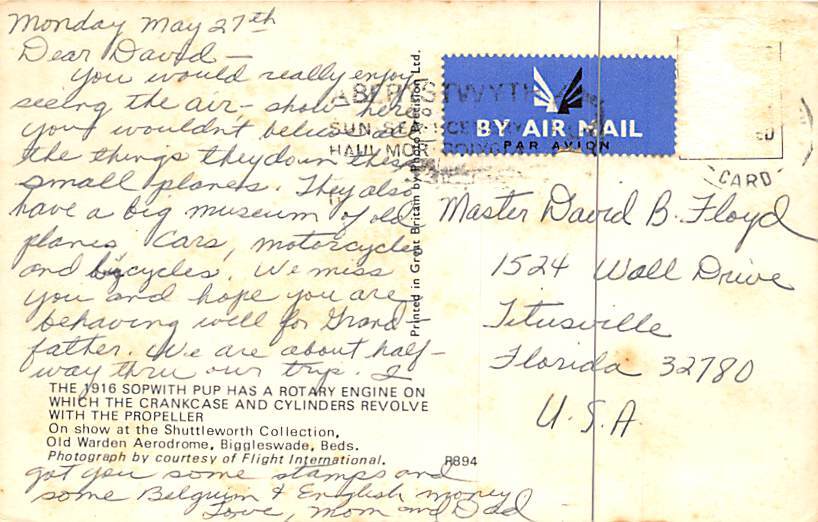 Monday May 27th
Dear David —
You would really enjoy
seeing the air-show here
you wouldn't believe all
the things they do in these
small planes. They also
have a big museum of old
planes cars, motorcycles
and bicycles. We miss
you and hope you are
behaving well for Grand-
father. We are about half-
way thru our trip. I
THE 1916 SOPWITH PUP HAS A ROTARY ENGINE ON
WHICH THE CRANKCASE AND CYLINDERS REVOLVE
WITH THE PROPELLER
On show at the Shuttleworth Collection,
Old Warden Aerodrome, Biggleswade, Beds.
Photograph by courtesy of Flight International.
R894
got you some stamps and
some Belguim & English money
Love, Mom and Dad
Printed in Great Britain by Photo Precision Ltd.
ABERYSTWYTH
SUN SEA
BY AIR MAIL
PAR AVION
CARD
Master David B. Floyd
1524 Wall Drive
Titusville
Florida 32780
U.S.A.